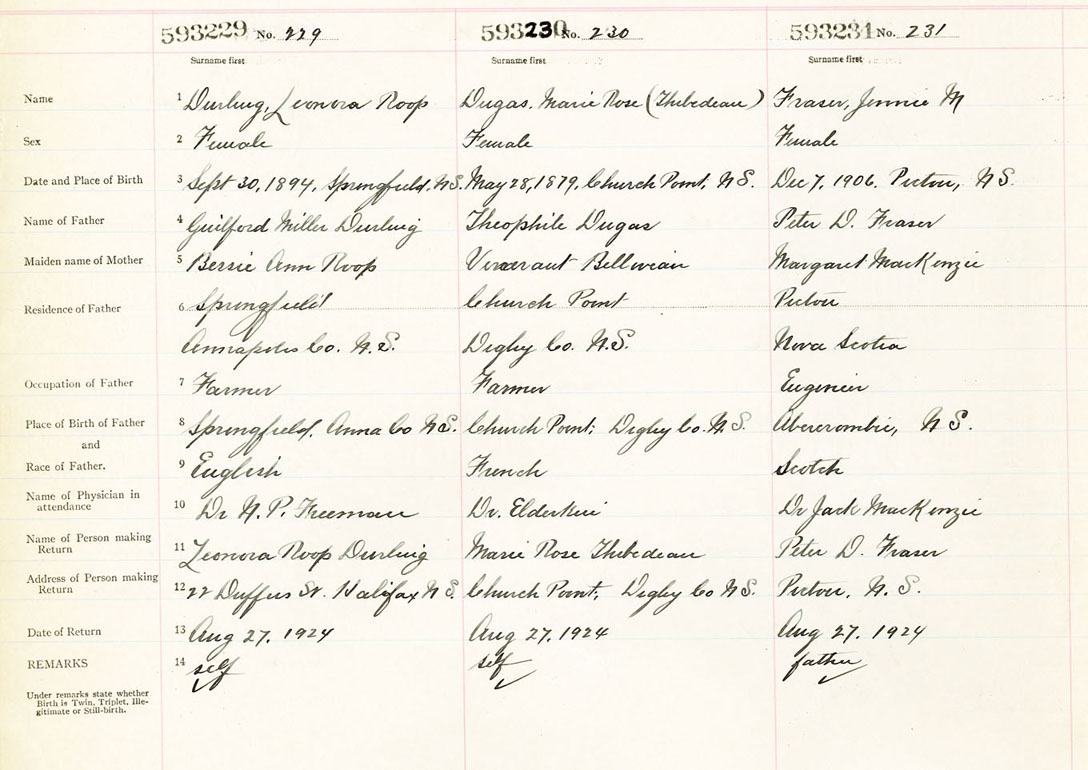 593229 No. 229 593230 No. 230 593231 No. 231
Surname first Surname first Surname first
Name 1 Durling, Leonora Roop Dugas, Marie Rose (Thebedeau) Fraser, Jennie M
Sex 2 Female Female Female
Date and Place of Birth 3 Sept 30, 1894, Springfield, N.S. May 28, 1879, Church Point, N.S. Dec 7, 1906. Pictou, N S.
Name of Father 4 Guilford Miller Durling Theophile Dugas Peter D. Fraser
Maiden name of Mother 5 Bessie Ann Roop Margaret MacKenzie
Residence of Father 6 Springfield Church Point Pictou
Annapolis Co. N.S. Digby Co. N.S. Nova Scotia
Occupation of Father 7 Farmer Farmer Engineer
Place of Birth of Father 8 Springfield, Anna Co N.S. Church Point, Digby Co. N.S. Abercrombie, N S.
and
Race of Father. 9 English French Scotch
Name of Physician in
attendance 10 Dr N. P. Freeman Dr. Elderkin Dr Jack MacKenzie
Name of Person making
Return 11 Leonora Roop Durling Marie Rose Thebedeau Peter D. Fraser
Address of Person making
Return 12 22 Duffus St. Halifax N S. Church Point, Digby Co N S. Pictou, N. S.
Date of Return 13 Aug 27, 1924 Aug 27, 1924 Aug 27, 1924
REMARKS 14 self self father
Under remarks state whether
Birth is Twin, Triplet, Ille-
gitimate or Still-birth.